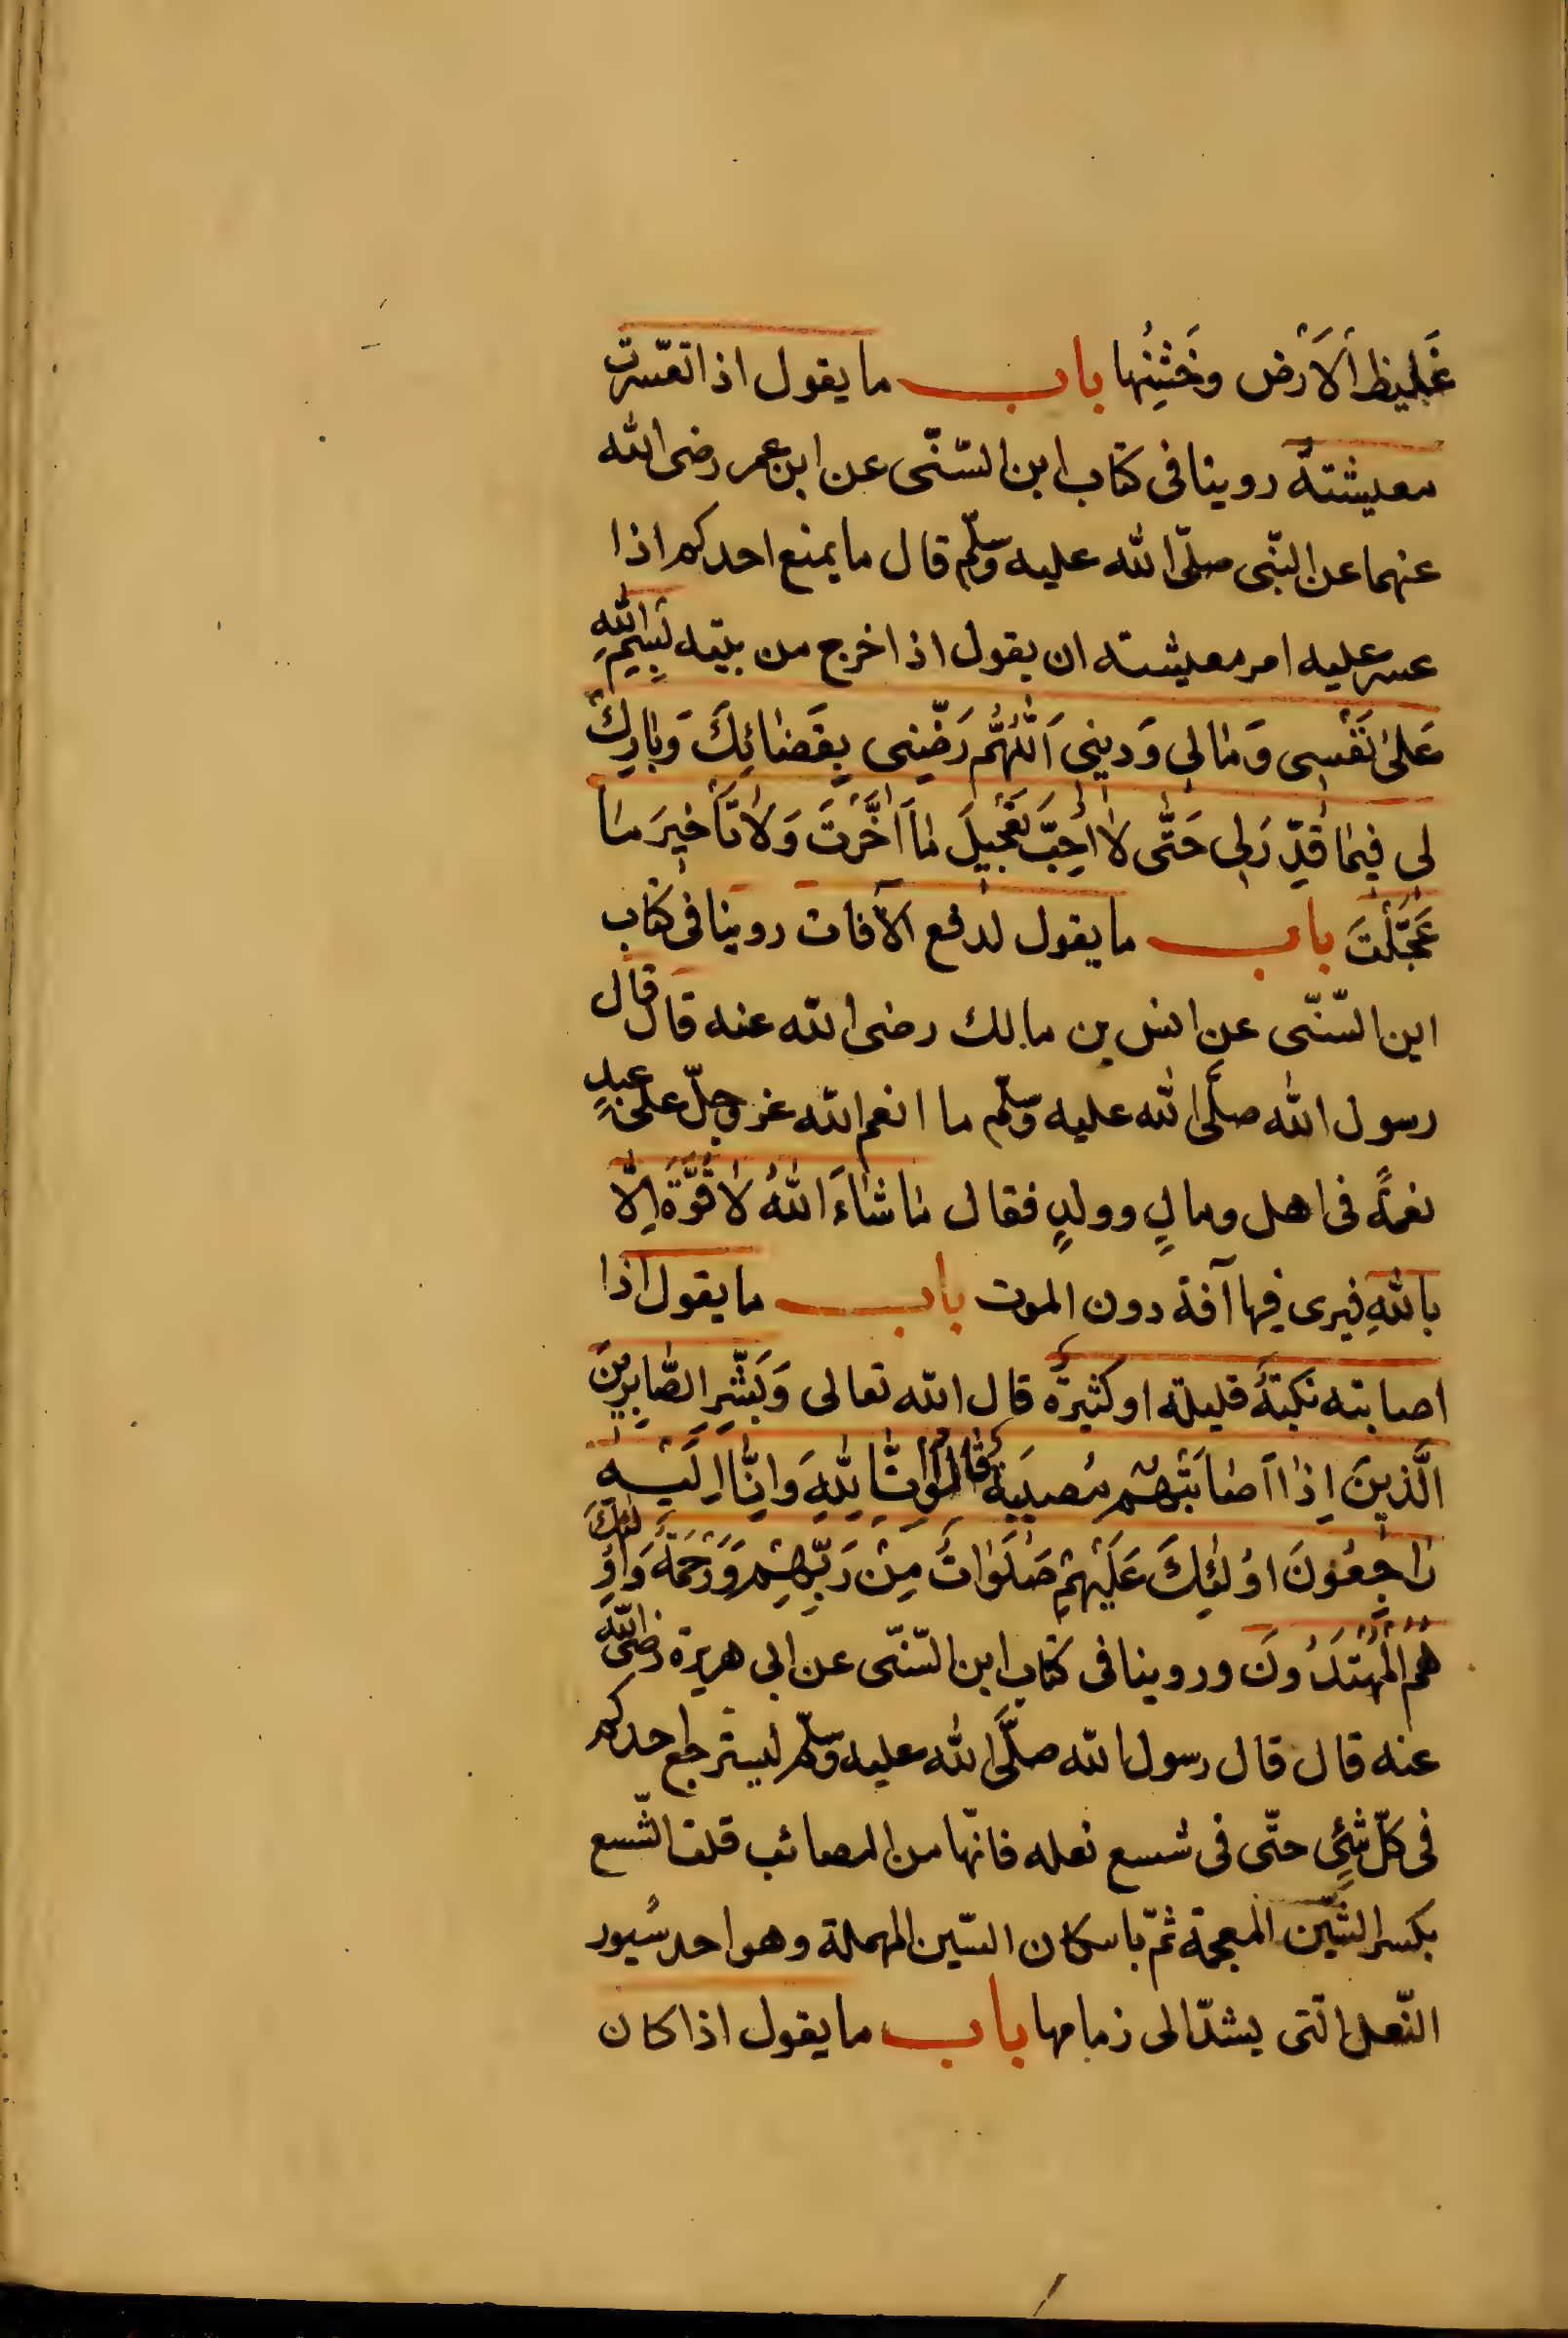 غَليظ اْلاَرْض وخَشِنُها باب ما يقول اذا تعسّرت
معيشتهُ روينا فى كتاب ابن السّنّى عن ابن عمر رضى الله
عنهما عن النّبى صلّى الله عليه وسلّم قال ما يمنع احدكم اذا
عسر عليه امر معيشته ان يقول اذا خرج من بيته بِسْمِ اللهِ
عَلىٰ نَفْسِى وَمٰالِى وَدِينِى اَللّٰهُمَّ رَضِّنِى بِقَضٰائِكَ وَبٰارِكْ
لِى فِيمٰا قُدِّرَ لِى حَتّٰى لاٰ اُحِبَّ تَعْجِيلَ مٰا اَخَّرْتَ وَلاٰ تَأْخِيرَ مٰا
عَجَّلْتَ باب ما يقول لدفع الآفات روينا فى كتاب
ابن السّنّى عن انس بن مالك رضى الله عنه قال قال
رسول الله صلّى الله عليه وسلّم ما انعم الله عز وجلّ على عبدٍ
نعمةً فى اهل ومالٍ وولدٍ فقال مٰا شٰاءَ اللهُ لاٰ قُوَّةَ اِلاّٰ
بِاللهِ فيرى فيها آفة دون الموت باب ما يقول اذا
اصابته نكبتهُ قليلة او كثيرةٌ قال الله تعالى وَبَشِّرِ الصّٰابِرِينَ
الَّذِينَ اِذٰا اَصٰابَتْهُمْ مُصِيبَةٌ قٰالُوا اِنّٰا لِلّٰهِ وَاِنّٰا اِلَيْهِ
رٰاجِعُونَ اوُلٰئِكَ عَلَيْهِمْ صَلَوٰاتٌ مِنْ رَبِّهِمْ وَرَحْمَةٌ وَاوُلٰئِكَ
هُمُ الْمُهْتَدُونَ وروينا فى كتاب ابن السّنّى عن ابى هريرة رضى الله
عنه قال قال رسول الله صلَّى الله عليه وسلّم ليسترجع احدكم
فى كلّ شئٍ حتّى فى شسع نعله فانّها من المصائب قلت الشّسع
بكسر الشّين المعجمة ثمّ باسكان السّين المهملة وهو احد سُيور
النّعل الّتى يشدّ الى زمامها باب ما يقول اذا كان